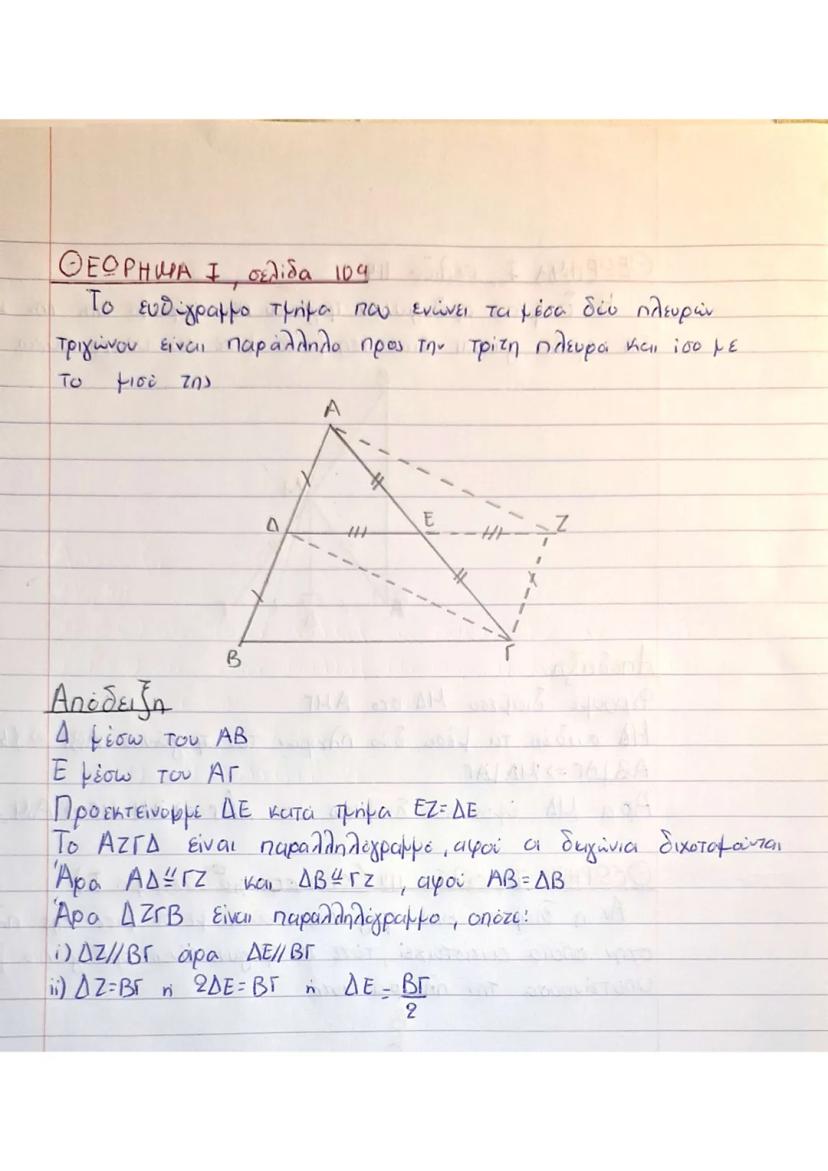 ΘΕΩΡΗΜΑ I, σελίδα 104
Το ευθύγραμμο τμήμα που ενώνει τα μέσα δύο πλευρών
τριγώνου είναι παράλληλο προς την τρίτη πλευρά και ίσο με
το μισό της
Α
Δ
Ε
Ζ
Β
Γ
Απόδειξη
Δ μέσω του ΑΒ
Ε μέσω του ΑΓ
Προεκτείνουμε ΔΕ κατά τμήμα ΕΖ=ΔΕ
Το ΑΖΓΔ είναι παραλληλόγραμμο, αφού οι διαγώνια διχοτομούνται
Άρα ΑΔ⋕ΓΖ και ΔΒ⋕ΓΖ, αφού ΑΒ=ΔΒ
Άρα ΔΖΓΒ είναι παραλληλόγραμμο, οπότε:
i) ΔΖ//ΒΓ άρα ΔΕ//ΒΓ
ii) ΔΖ=ΒΓ ή 2ΔΕ=ΒΓ ή ΔΕ=ΒΓ/2